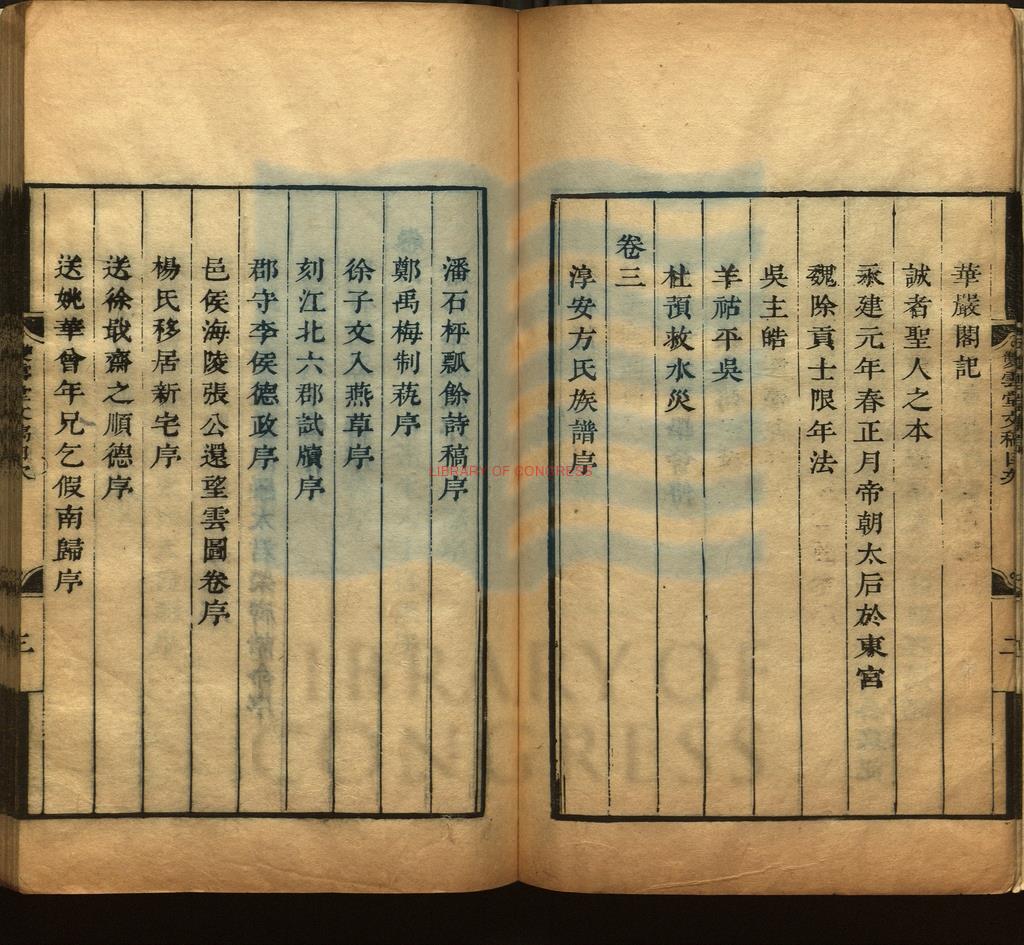 華嚴閣記
誠者聖人之本
永建元年春正月帝朝太后於東宮
魏除貢士限年法
吳主皓
羊祜平吳
杜預救水災
卷三
淳安方氏族譜序
潘石枰瓢餘詩稿序
鄭禹梅制萟序
徐子文入燕草序
刻江北六郡試牘序
郡守李侯德政序
邑侯海陵張公還望雲圖卷序
楊氏移居新宅序
送徐敢齋之順德序
送姚華曾年兄乞假南歸序
雲堂文稿目次
二
三
LIBRARY OF CONGRESS